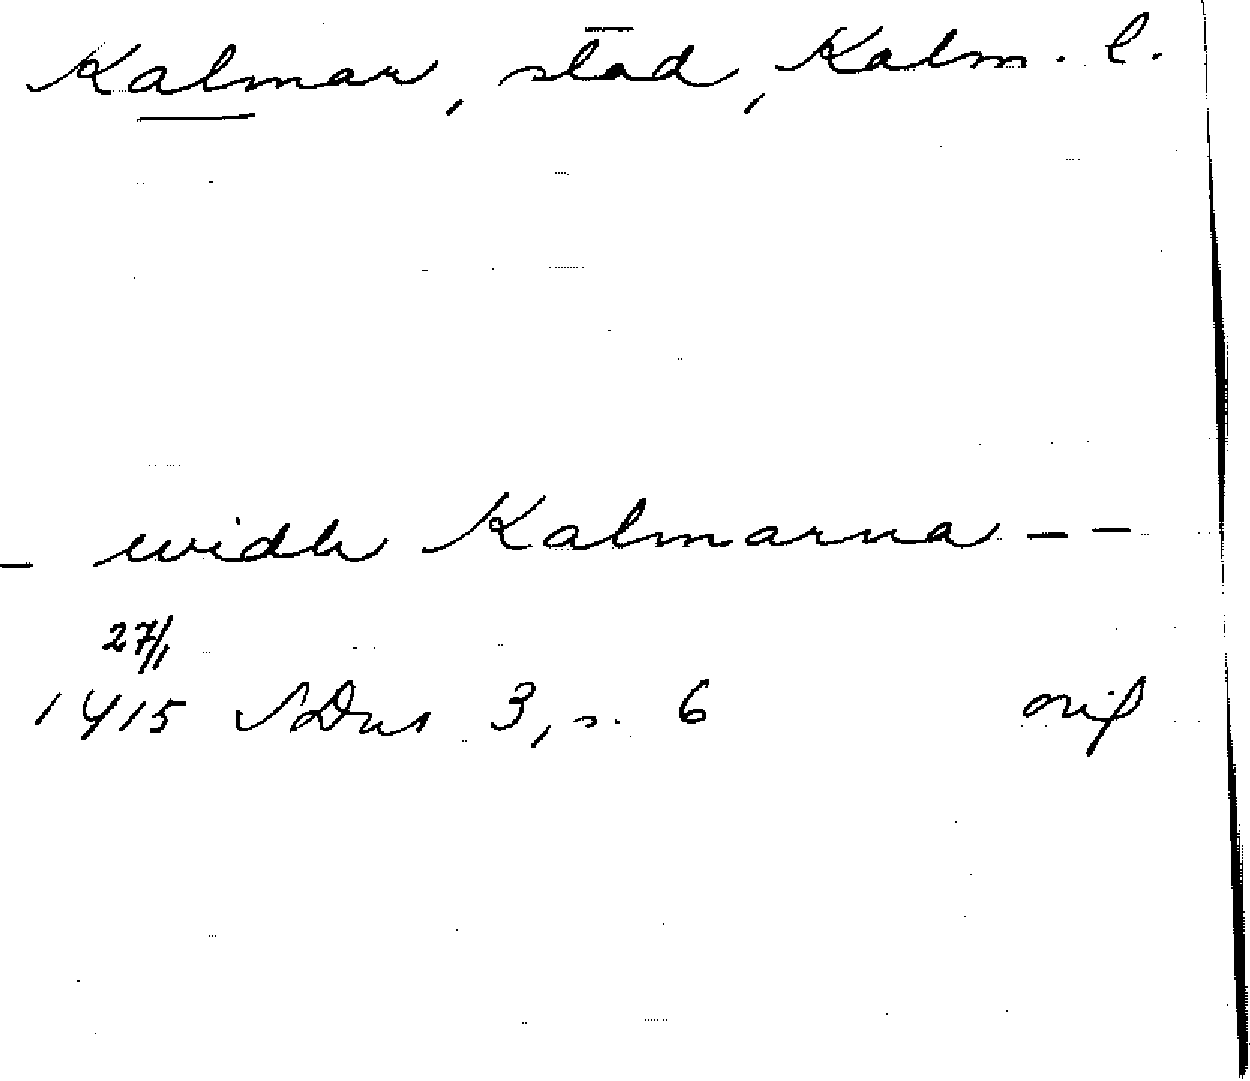 Kalmar, stad, Kalm. l.
- widh Kalmarna - -
27/1
1415 SDns 3, s. 6 orig